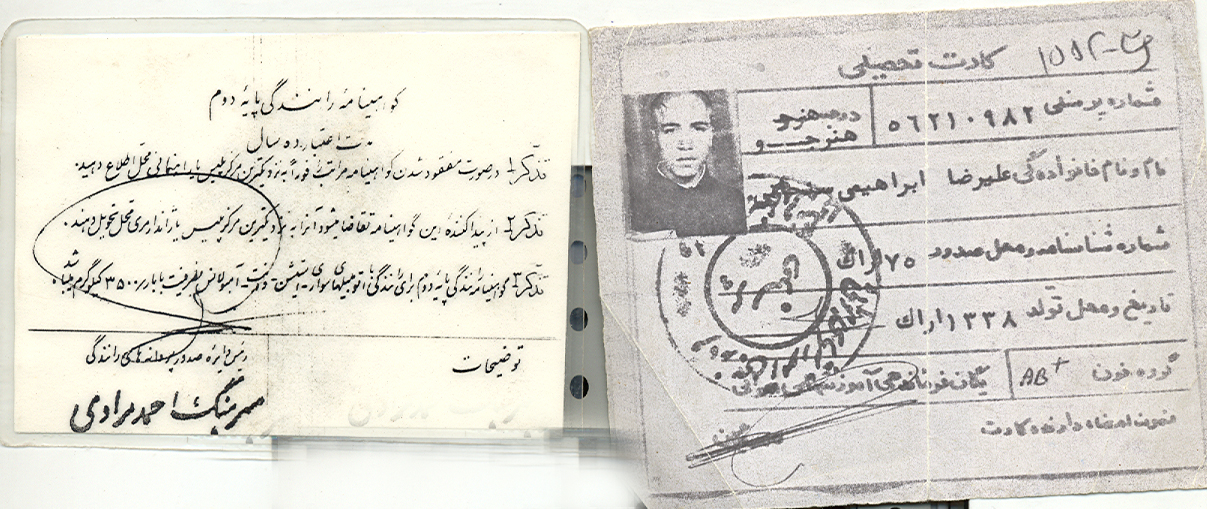 گواهینامه رانندگی پایه دوم
مدت اعتبار ده سال
تذکر۱- در صورت مفقود شدن گواهینامه مراتب فوراً به نزدیکترین مرکز پلیس یا راهنمائی محل اطلاع دهید.
تذکر۲- از پیدا کننده این گواهینامه تقاضا میشود آنرا به نزدیکترین مرکز پلیس یا ژاندارمری محل تحویل دهند.
تذکر۳- گواهینامه رانندگی پایه دوم برای رانندگی با اتومبیلهای سواری - استیشن - وانت - آمبولانس بظرفیت با بار ۳۵۰۰ کیلوگرم میباشد.
توضیحات
رئیس دایره صدور پروانه های رانندگی
سرهنگ احمد مرادی
کارت تحصیلی
شماره پرسنلی ۵۶۲۱۰۹۸۲
هنرجو
نام و نام خانوادگی علیرضا ابراهیمی
شماره شناسنامه و محل صدور ۷۵ اراک
تاریخ و محل تولد ۱۳۳۸ اراک
گروه خون AB+
یگان فرماندهی آموزشهای هوائی
نمونه امضاء دارنده کارت